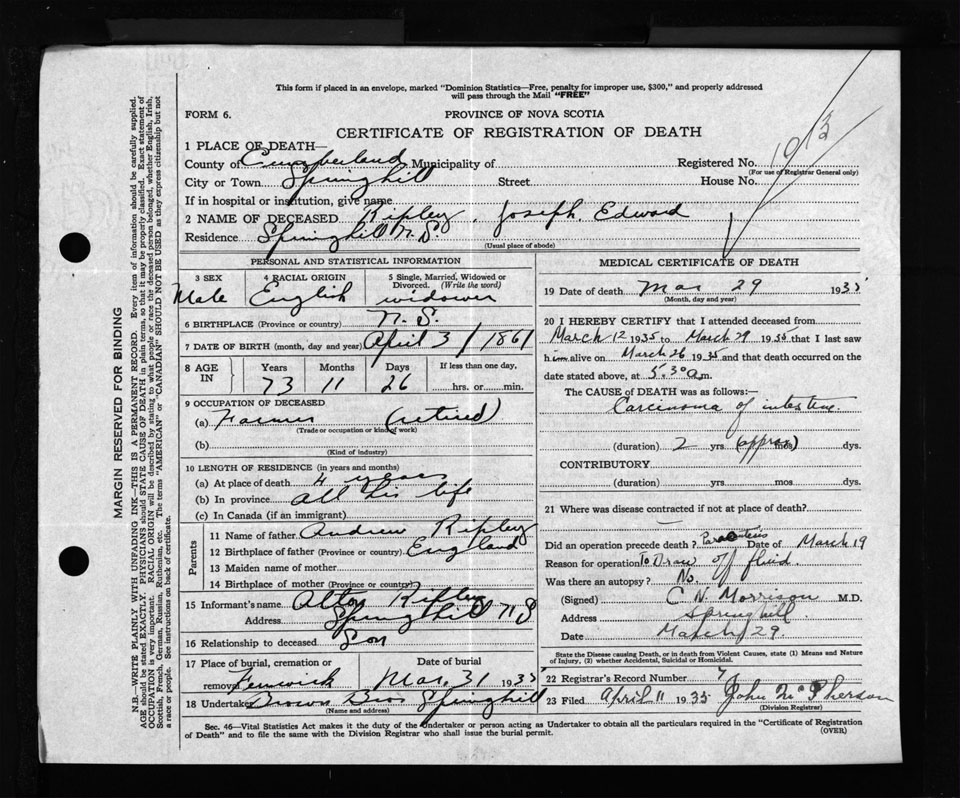 This form if placed in an envelope, marked "Dominion Statistics—Free, penalty for improper use, $300," and properly addressed
will pass through the Mail "FREE"
FORM 6.
PROVINCE OF NOVA SCOTIA
CERTIFICATE OF REGISTRATION OF DEATH
1 PLACE OF DEATH—
County of Cumberland Municipality of
Registered No.
(For use of Registrar General only)
City or Town Springhill Street House No.
If in hospital or institution, give name
2 NAME OF DECEASED Ripley, Joseph Edward
Residence Springhill N.S.
(Usual place of abode)
PERSONAL AND STATISTICAL INFORMATION
3 SEX 4 RACIAL ORIGIN 5 Single, Married, Widowed or
Divorced. (Write the word)
Male English widower
6 BIRTHPLACE (Province or country) N.S.
7 DATE OF BIRTH (month, day and year) April 3 / 1861
8 AGE IN Years Months Days If less than one day,
73 11 26 hrs. or min.
9 OCCUPATION OF DECEASED
(a) Farmer (retired)
(Trade or occupation or kind of work)
(b)
(Kind of industry)
10 LENGTH OF RESIDENCE (in years and months)
(a) At place of death 4 years
(b) In province all his life
(c) In Canada (if an immigrant)
Parents
11 Name of father Andrew Ripley
12 Birthplace of father (Province or country) England
13 Maiden name of mother
14 Birthplace of mother (Province or country)
15 Informant's name Alton Ripley
Address Springhill N S
16 Relationship to deceased Son
17 Place of burial, cremation or Date of burial
removal Fenwick Mar. 31 1935
18 Undertaker Brown Bros Springhill
(Name and address)
MEDICAL CERTIFICATE OF DEATH
19 Date of death Mar 29 1935
(Month, day and year)
20 I HEREBY CERTIFY that I attended deceased from
March 12 1935 to March 29 1935 that I last saw
him alive on March 26 1935 and that death occurred on the
date stated above, at 5.30 a.m.
The CAUSE of DEATH was as follows:—
Carcinoma of intestine.
(duration) 2 yrs (approx) mos dys.
CONTRIBUTORY
(duration) yrs mos dys.
21 Where was disease contracted if not at place of death?
Did an operation precede death? Date of March 19
Reason for operation To Draw off fluid.
Was there an autopsy? No.
(Signed) C N Morrison M.D.
Address Springhill
Date March 29.
State the Disease causing Death, or in death from Violent Causes, state (1) Means and Nature
of Injury, (2) whether Accidental, Suicidal or Homicidal.
22 Registrar's Record Number
23 Filed April 11 1935 John McPherson
(Division Registrar)
Sec. 46—Vital Statistics Act makes it the duty of the Undertaker or person acting as Undertaker to obtain all the particulars required in the "Certificate of Registration
of Death" and to file the same with the Division Registrar who shall issue the burial permit.
(OVER)
MARGIN RESERVED FOR BINDING
N.B.—WRITE PLAINLY WITH UNFADING INK—THIS IS A PERMANENT RECORD. Every item of information should be carefully supplied.
AGE should be stated EXACTLY. PHYSICIANS should STATE CAUSE OF DEATH in plain terms, so that it may be properly classified. Exact statement of
OCCUPATION is very important. RACIAL ORIGIN will be described by stating to what people or race the deceased person belonged, whether English, Irish,
Scottish, French, German, Russian, Ruthenian, etc. The terms "AMERICAN" or "CANADIAN" SHOULD NOT BE USED as they express citizenship but not
a race or people. See instructions on back of certificate.